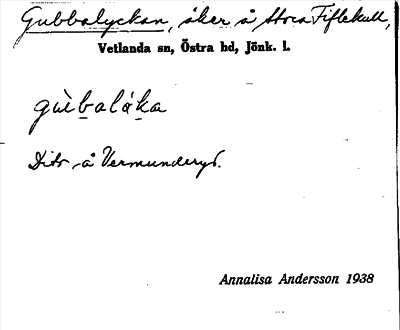 Gubbalyckan, åker å Stora Fiflekull,
Vetlanda sn, Östra hd, Jönk. l.
gùbaláka
Dito å Vermunderyd.
Annalisa Andersson 1938